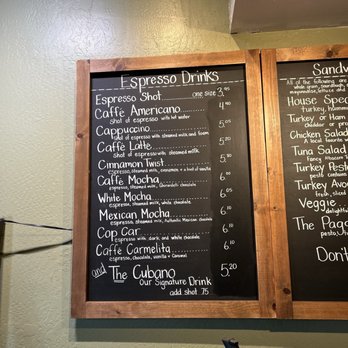 Espresso Drinks
Espresso Shot one size 3.95
Caffé Americano 4.90
shot of espresso with hot water
Cappuccino 5.05
shot of espresso with steamed milk and foam
Caffé Latte 5.05
shot of espresso with steamed milk
Cinnamon Twist 5.80
espresso, steamed milk, cinnamon + a hint of vanilla
Caffé Mocha 6.05
espresso, steamed milk, Ghirardelli chocolate
White Mocha 6.10
espresso, steamed milk, white chocolate
Mexican Mocha 6.10
espresso, steamed milk, Authentic Mexican chocolate
Cop Car 6.10
espresso milk, dark, and white chocolate
Caffé Carmelita 6.10
espresso, chocolate, vanilla + caramel
and The Cubano 5.20
Our Signature Drink
add shot .75
Sandw
All of the following are
whole grain, sourdough,
mayonnaise, lettuce and
House Spec
turkey,
Turkey or Ham
cheddar or
Chicken Salad
A local favorite
Tuna Salad
Fancy Albacore
Turkey Pest
pesto
Turkey Avo
fresh, sliced
Veggie
delightful
The Pagg
pesto,
Don't